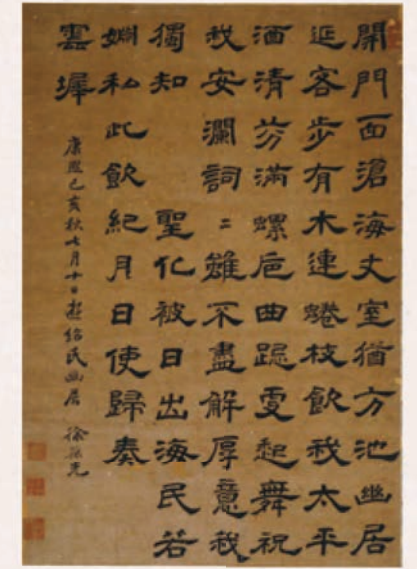 開門面滄海丈室猶方池幽居
延客步有木連蜷枝飲我太平
酒清芬滿螺卮曲起舞祝
我安瀾詞二雖不盡解厚意我
獨知 聖化被日出海民若
私此飲紀月日使歸奏
雲墀
康熙己亥秋七月十日氏幽居 徐葆光